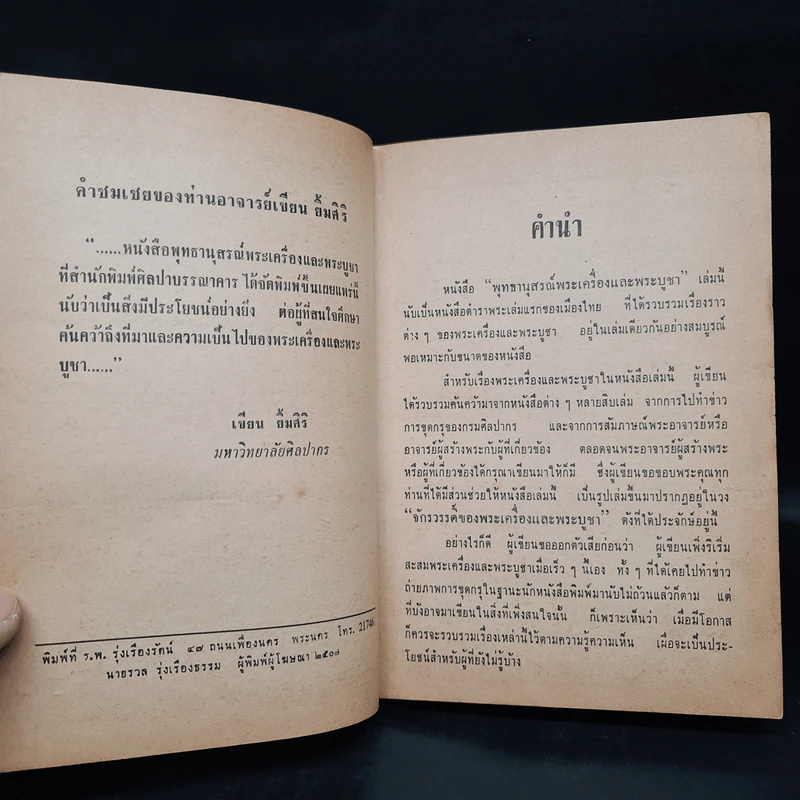 คำชมเชยของท่านอาจารย์เขียน ยิ้มศิริ
“......หนังสือพุทธานุสรณ์พระเครื่องและพระบูชา
ที่สำนักพิมพ์ศิลปาบรรณาคาร ได้จัดพิมพ์ขึ้นเผยแพร่นี้
นับว่าเป็นสิ่งมีประโยชน์อย่างยิ่ง ต่อผู้ที่สนใจศึกษา
ค้นคว้าถึงที่มาและความเป็นไปของพระเครื่องและพระ
บูชา......”
เขียน ยิ้มศิริ
มหาวิทยาลัยศิลปากร
พิมพ์ที่ ร.พ. รุ่งเรืองรัตน์ ๔๗ ถนนเฟื่องนคร พระนคร โทร. 21746
นายรวล รุ่งเรืองธรรม ผู้พิมพ์ผู้โฆษณา ๒๕๐๗
คำนำ
หนังสือ “พุทธานุสรณ์พระเครื่องและพระบูชา” เล่มนี้
นับเป็นหนังสือตำราพระเล่มแรกของเมืองไทย ที่ได้รวบรวมเรื่องราว
ต่าง ๆ ของพระเครื่องและพระบูชา อยู่ในเล่มเดียวกันอย่างสมบูรณ์
พอเหมาะกับขนาดของหนังสือ
สำหรับเรื่องพระเครื่องและพระบูชาในหนังสือเล่มนี้ ผู้เขียน
ได้รวบรวมค้นคว้ามาจากหนังสือต่าง ๆ หลายสิบเล่ม จากการไปทำข่าว
การขุดกรุของกรมศิลปากร และจากการสัมภาษณ์พระอาจารย์หรือ
อาจารย์ผู้สร้างพระกับผู้ที่เกี่ยวข้อง ตลอดจนพระอาจารย์ผู้สร้างพระ
หรือผู้ที่เกี่ยวข้องได้กรุณาเขียนมาให้ก็มี ซึ่งผู้เขียนขอขอบพระคุณทุก
ท่านที่ได้มีส่วนช่วยให้หนังสือเล่มนี้ เป็นรูปเล่มขึ้นมาปรากฏอยู่ในวง
“จักรวรรดิ์ของพระเครื่องและพระบูชา” ดังที่ได้ประจักษ์อยู่นี้
อย่างไรก็ดี ผู้เขียนขอออกตัวเสียก่อนว่า ผู้เขียนเพิ่งริเริ่ม
สะสมพระเครื่องและพระบูชาเมื่อเร็ว ๆ นี้เอง ทั้ง ๆ ที่ได้เคยไปทำข่าว
ถ่ายภาพการขุดกรุในฐานะนักหนังสือพิมพ์มานับไม่ถ้วนแล้วก็ตาม แต่
ที่บังอาจมาเขียนในสิ่งที่เพิ่งสนใจนั้น ก็เพราะเห็นว่า เมื่อมีโอกาส
ก็ควรจะรวบรวมเรื่องเหล่านี้ไว้ตามความรู้ความเห็น เผื่อจะเป็นประ-
โยชน์สำหรับผู้ที่ยังไม่รู้บ้าง